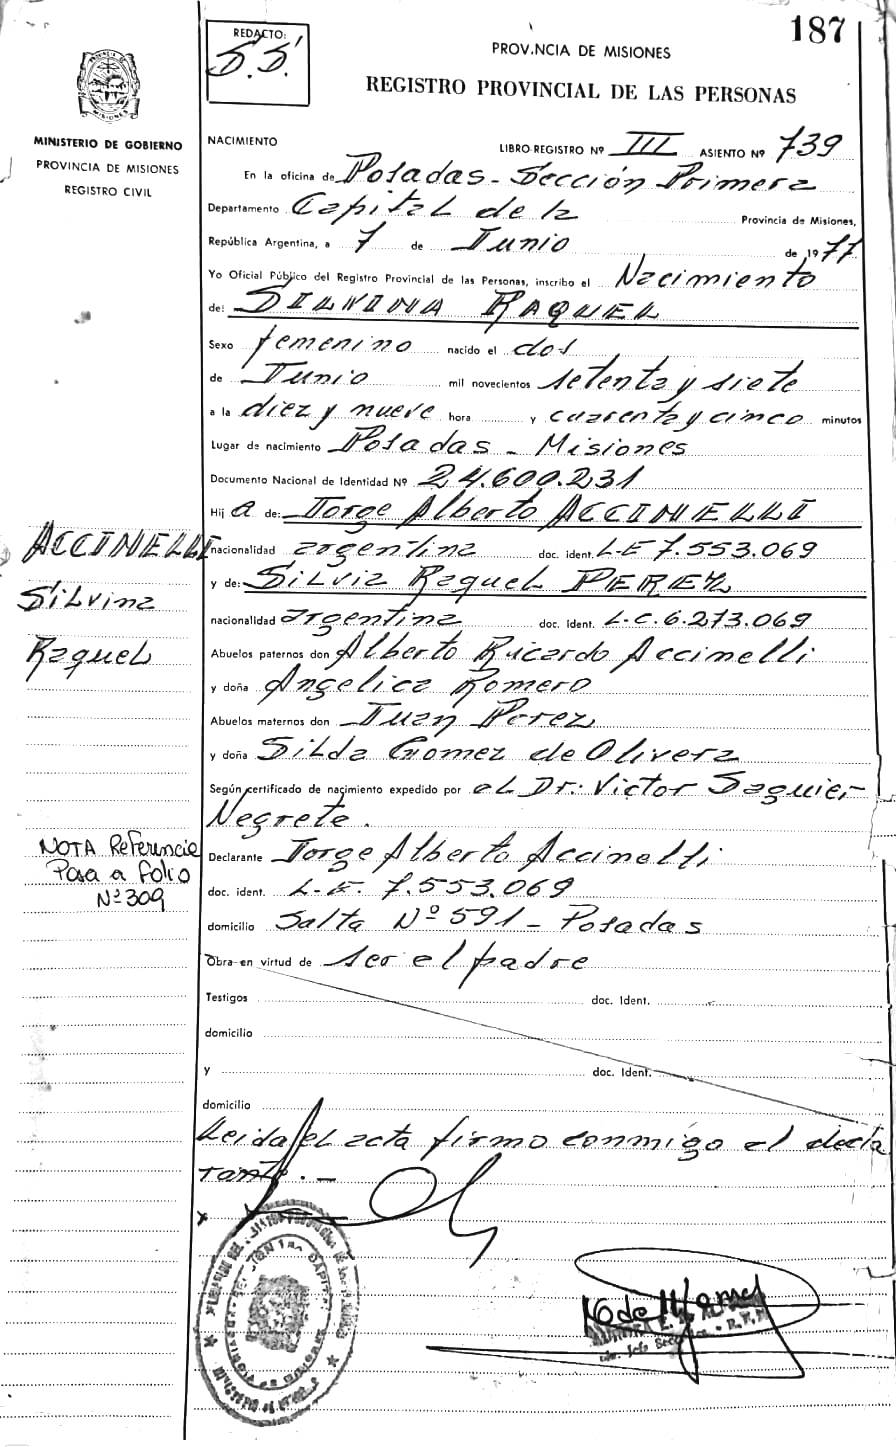 187
REDACTO:
S.S.
PROV.NCIA DE MISIONES
REGISTRO PROVINCIAL DE LAS PERSONAS
MINISTERIO DE GOBIERNO
PROVINCIA DE MISIONES
REGISTRO CIVIL
NACIMIENTO LIBRO-REGISTRO Nº III ASIENTO Nº 739
En la oficina de Posadas - Sección Primera
Departamento Capital de la Provincia de Misiones,
República Argentina, a 7 de Junio de 1977
Yo Oficial Público del Registro Provincial de las Personas, inscribo el Nacimiento
de: SILVINA RAQUEL
Sexo femenino nacido el dos
de Junio mil novecientos setenta y siete
a la diez y nueve hora y cuarenta y cinco minutos
Lugar de nacimiento Posadas - Misiones
Documento Nacional de Identidad Nº 24.600.231
Hij a de: Jorge Alberto ACCINELLI
nacionalidad argentina doc. ident. L-E 7.553.069
y de: Silvia Raquel PEREZ
nacionalidad argentina doc. ident. L.C. 6.273.069
Abuelos paternos don Alberto Ricardo Accinelli
y doña Angelica Romero
Abuelos maternos don Juan Perez
y doña Silda Gomez de Olivera
Según certificado de nacimiento expedido por el Dr. Victor Saguier
Negrete.
Declarante Jorge Alberto Accinelli
doc. ident. L.E. 7.553.069
domicilio Salta Nº 591 - Posadas
Obra en virtud de ser el padre
Testigos doc. Ident.
domicilio
y doc. Ident.
domicilio
Leida el acta firmo conmigo el decla
rante. -
ACCINELLI
Silvina
Raquel
NOTA Referencia
Pasa a folio
Nº 309